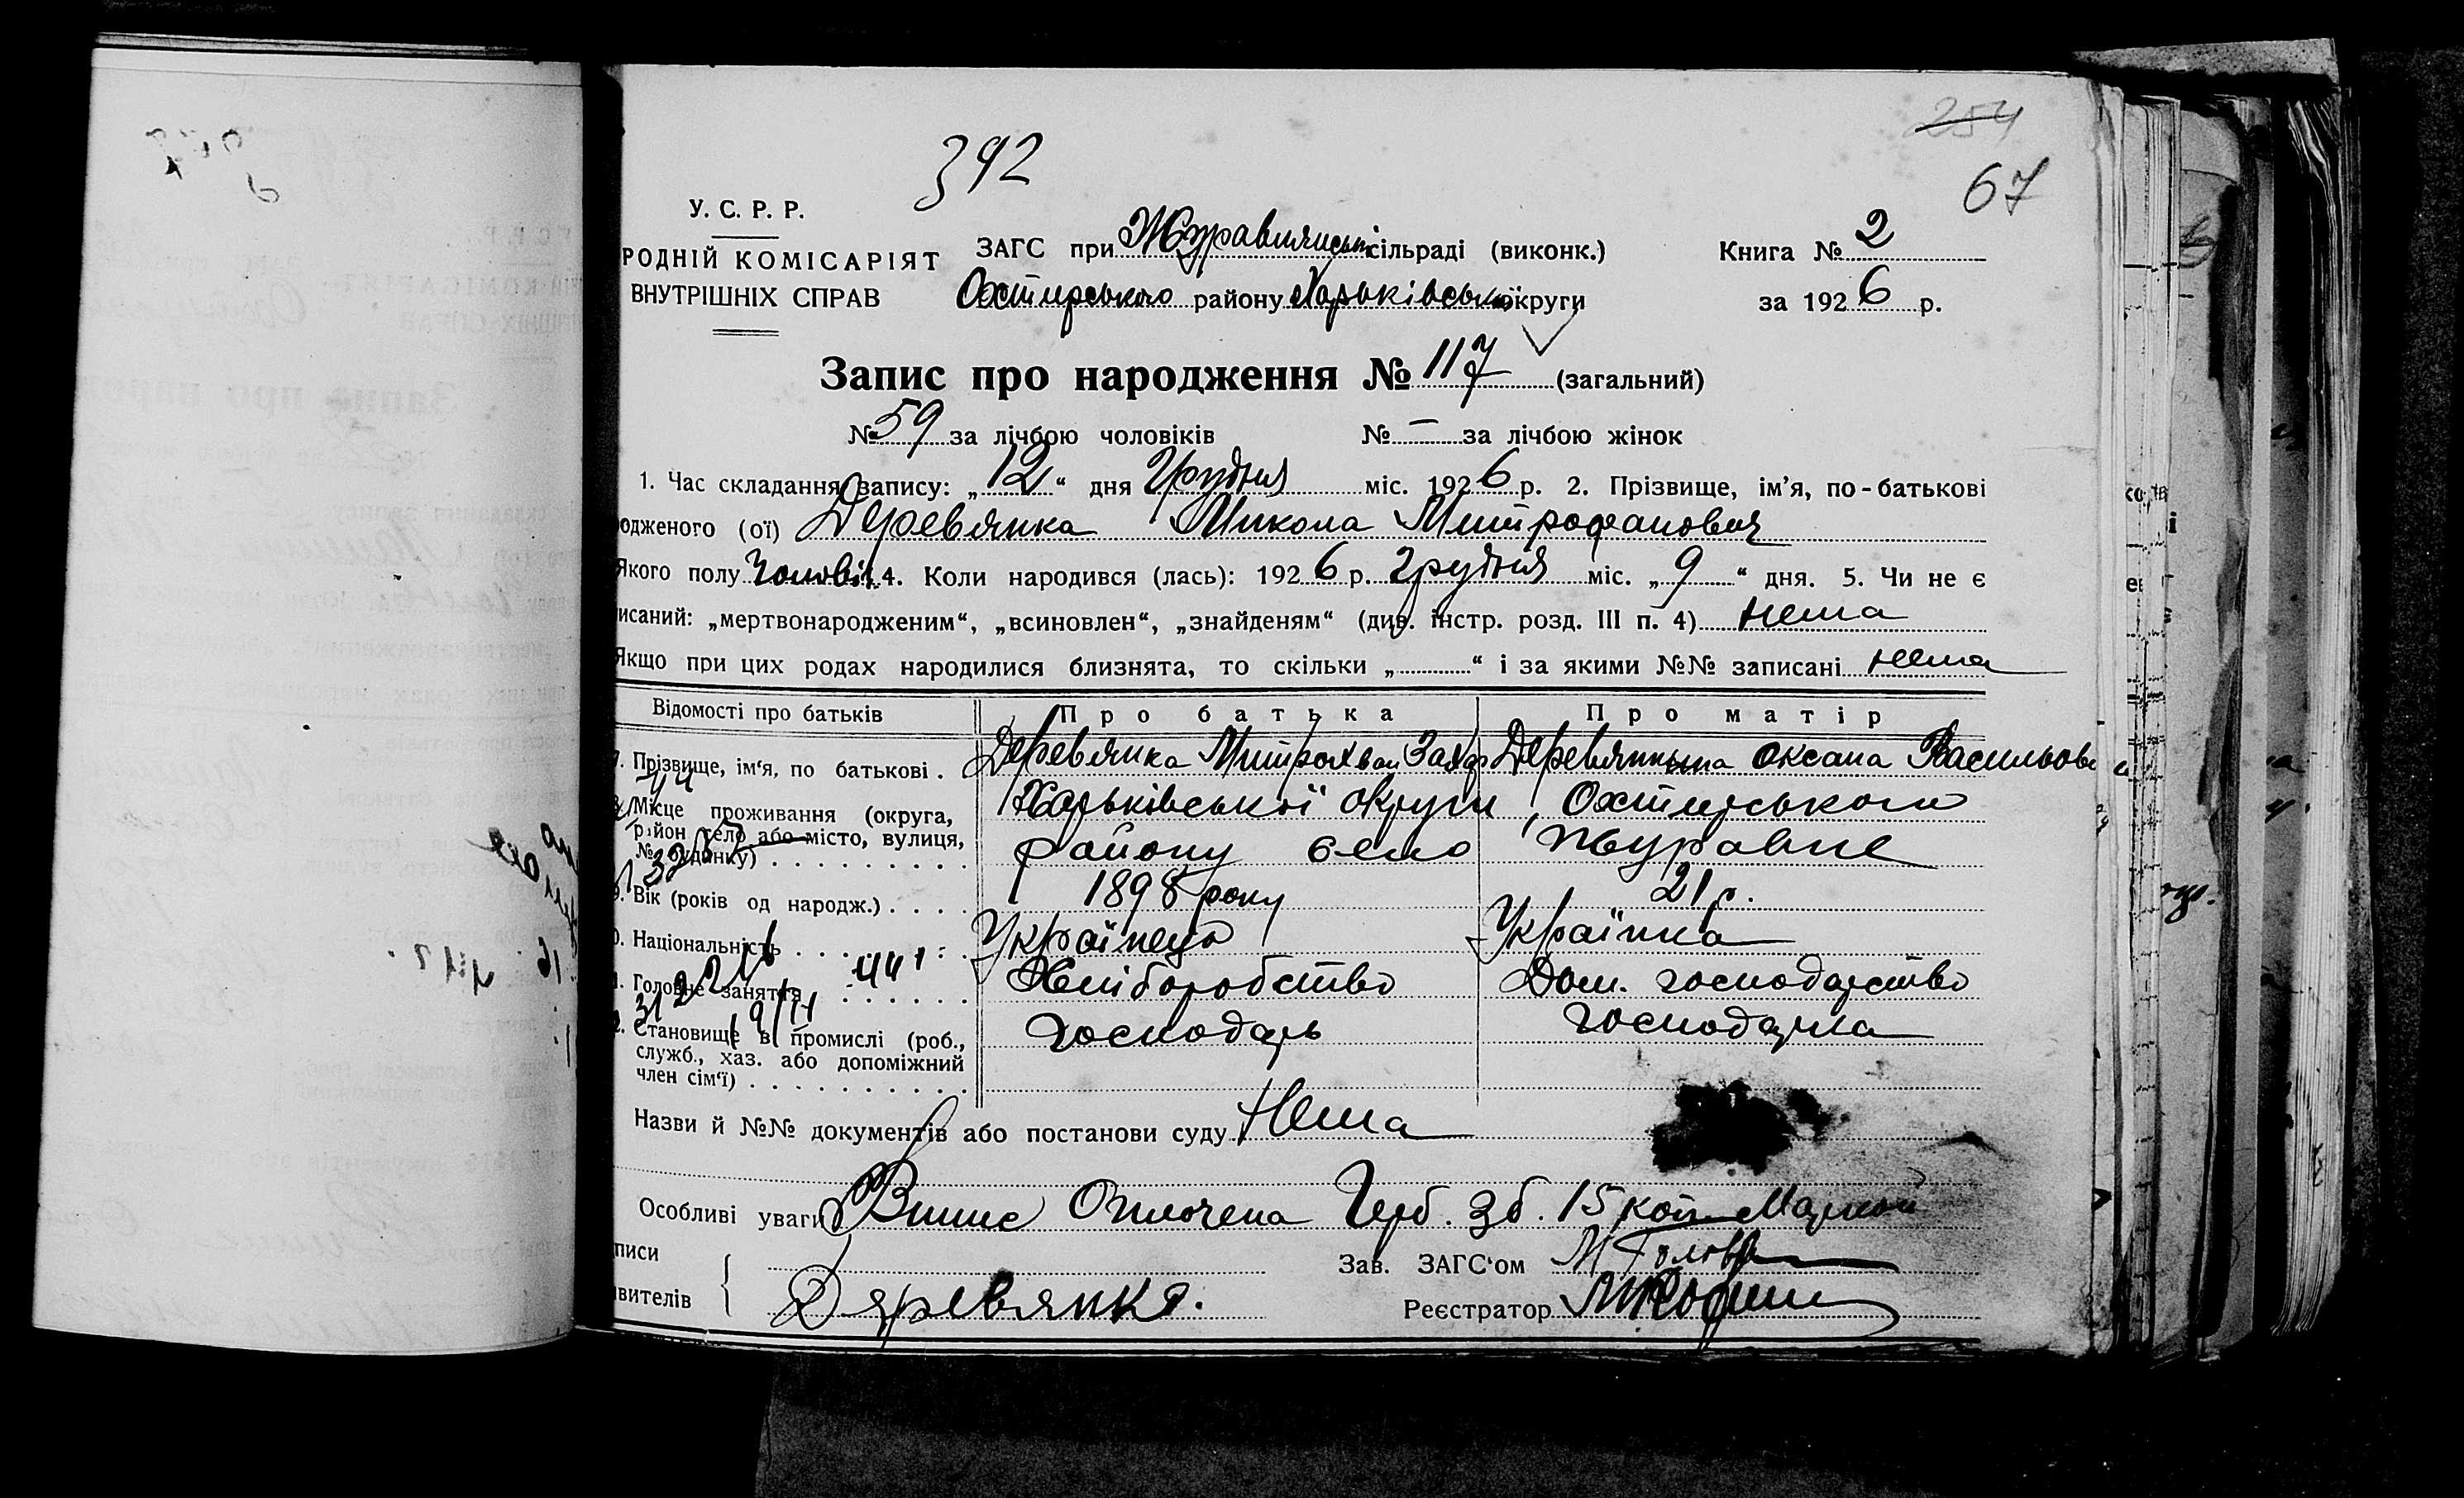 254
392
67
У. С. Р. Р.
РОДНІЙ КОМІСАРІЯТ
ВНУТРІШНІХ СПРАВ
ЗАГС при Журавлянській сільраді (виконк.)
Охтирського району Харьківської округи
Книга № 2
за 1926 р.
Запис про народження № 117 (загальний)
№ 59 за лічбою чоловіків № — за лічбою жінок
1. Час складання запису: „12“ дня Грудня міс. 1926 р. 2. Прізвище, ім'я, по-батькові
одженого (ої) Деревянка Микола Митрофанович
Якого полу Чоловіч. 4. Коли народився (лась): 1926 р. Грудня міс. „9“ дня. 5. Чи не є
исаний: „мертвонародженим“, „всиновлен“, „знайденям“ (див. інстр. розд. III п. 4) Нема
Якщо при цих родах народилися близнята, то скільки „ “ і за якими №№ записані нема
Відомості про батьків Про батька Про матір
7. Прізвище, ім'я, по батькові. Деревянка Митрохван Захар Деревянкына Оксана Васильовн
8. Місце проживання (округа, район село або місто, вулиця, № будинку) Харьківської округи, Охтирського
району село Журавне
9. Вік (років од народж.) 1898 року 21 р.
0. Національність Українець Українка
1. Головне заняття Хліборобство Дом. господарство
2. Становище в промислі (роб., служб., хаз. або допоміжний член сім'ї) Господарь Господарка
Назви й №№ документів або постанови суду Нема
Особливі уваги Випис Оплочена Герб. Зб. 15 коп. Маркой
писи
Зав. ЗАГС'ом
вителів Деревянка.
Реєстратор